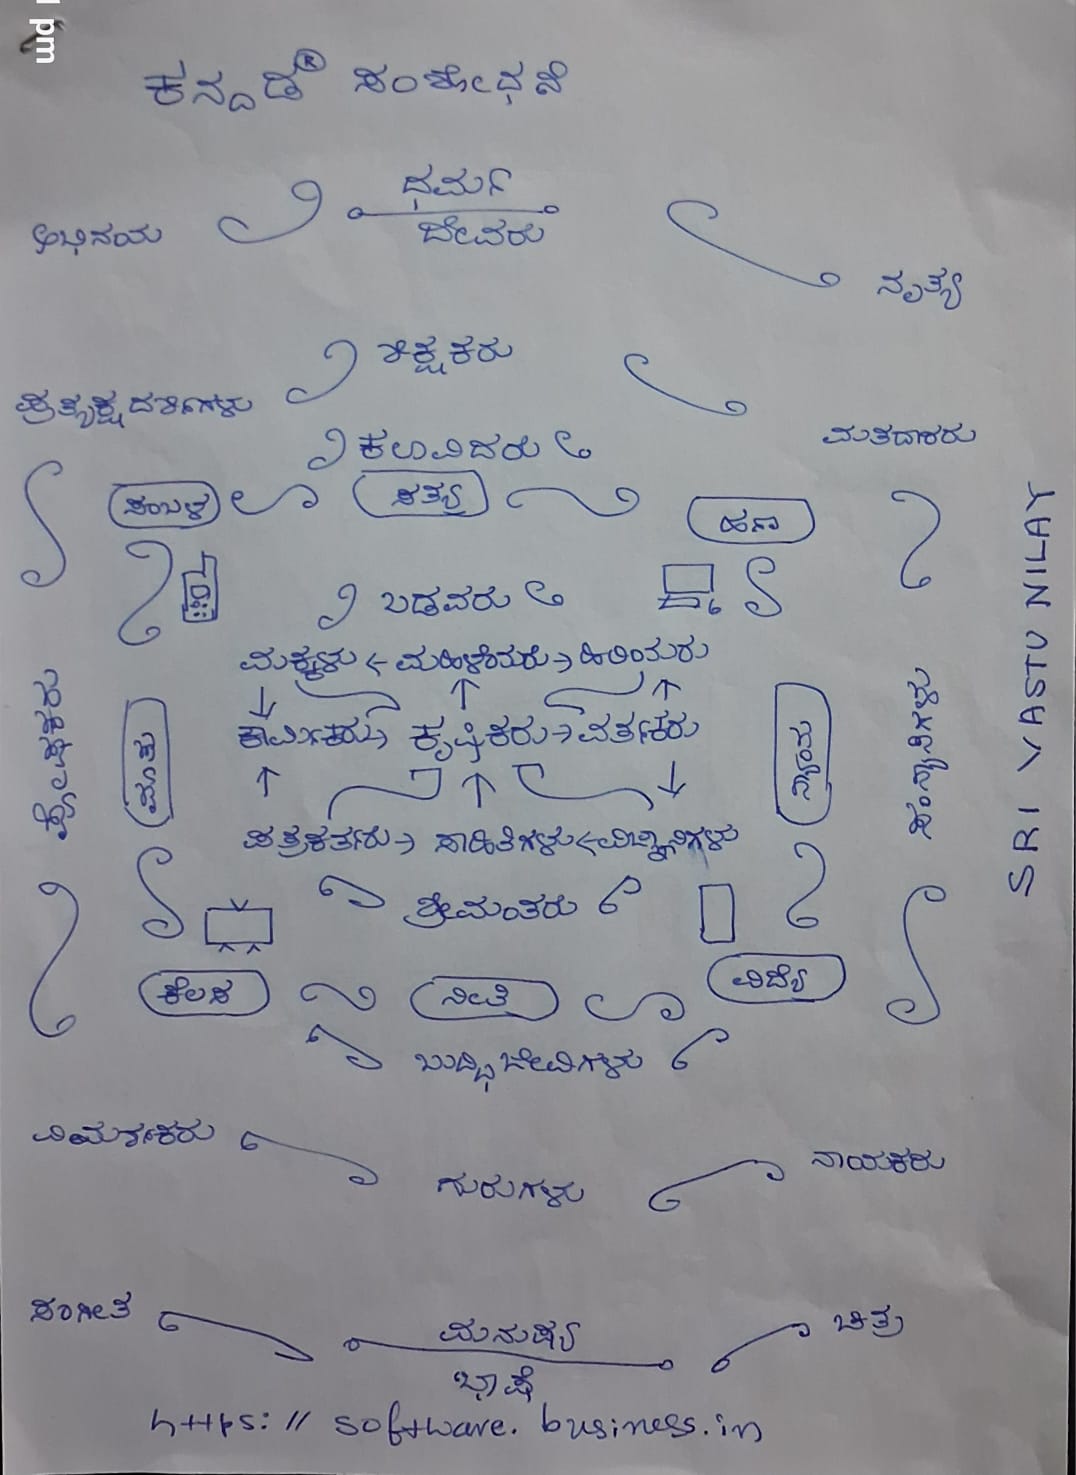 pm
ಕನ್ನಡ® ಸಂಶೋಧನೆ
ಧರ್ಮ
ದೇವರು
ಅಭಿನಯ
ನೃತ್ಯ
ಶಿಕ್ಷಕರು
ಪ್ರತ್ಯಕ್ಷದರ್ಶಿಗಳು
ಮತದಾರರು
ಕಲಾವಿದರು
ಸಂಬಳ
ಸತ್ಯ
ಹಣ
ಬಡವರು
ಮಕ್ಕಳು ← ಮಹಿಳೆಯರು → ಹಿರಿಯರು
ಕಾರ್ಮಿಕರು → ಕೃಷಿಕರು → ವರ್ತಕರು
ಪೋಷಕರು
ಮಾತು
ನ್ಯಾಯ
SRI VASTU NILAY
ಪತ್ರಕರ್ತರು → ಸಾಹಿತಿಗಳು ← ವಿಜ್ಞಾನಿಗಳು
ಶ್ರೀಮಂತರು
ಕೆಲಸ
ನೀತಿ
ವಿದ್ಯೆ
ಬುದ್ಧಿಜೀವಿಗಳು
ವಿಮರ್ಶಕರು
ಗುರುಗಳು
ನಾಯಕರು
ಸಂಗೀತ
ಮನುಷ್ಯ
ಭಾಷೆ
ಚಿತ್ರ
https://software.business.in